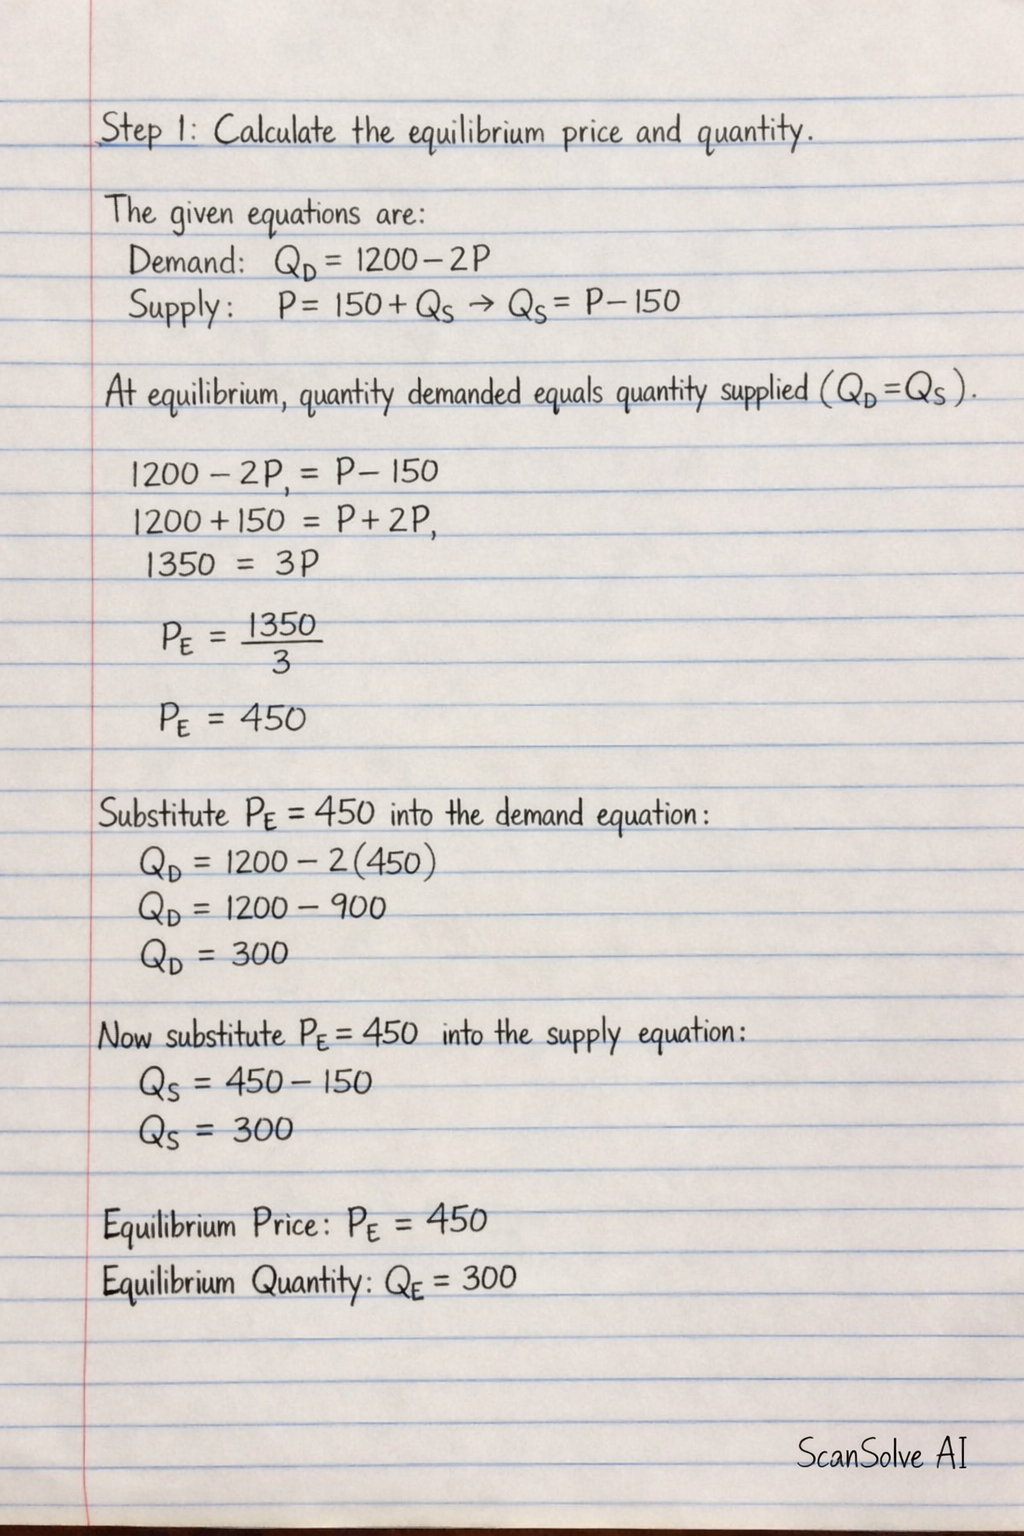 Step 1: Calculate the equilibrium price and quantity.
The given equations are:
Demand: Q_D = 1200 – 2P
Supply: P = 150 + Q_S → Q_S = P – 150
At equilibrium, quantity demanded equals quantity supplied (Q_D = Q_S).
1200 – 2P, = P – 150
1200 + 150 = P + 2P,
1350 = 3P
P_E = 1350/3
P_E = 450
Substitute P_E = 450 into the demand equation:
Q_D = 1200 – 2(450)
Q_D = 1200 – 900
Q_D = 300
Now substitute P_E = 450 into the supply equation:
Q_S = 450 – 150
Q_S = 300
Equilibrium Price: P_E = 450
Equilibrium Quantity: Q_E = 300
ScanSolve AI